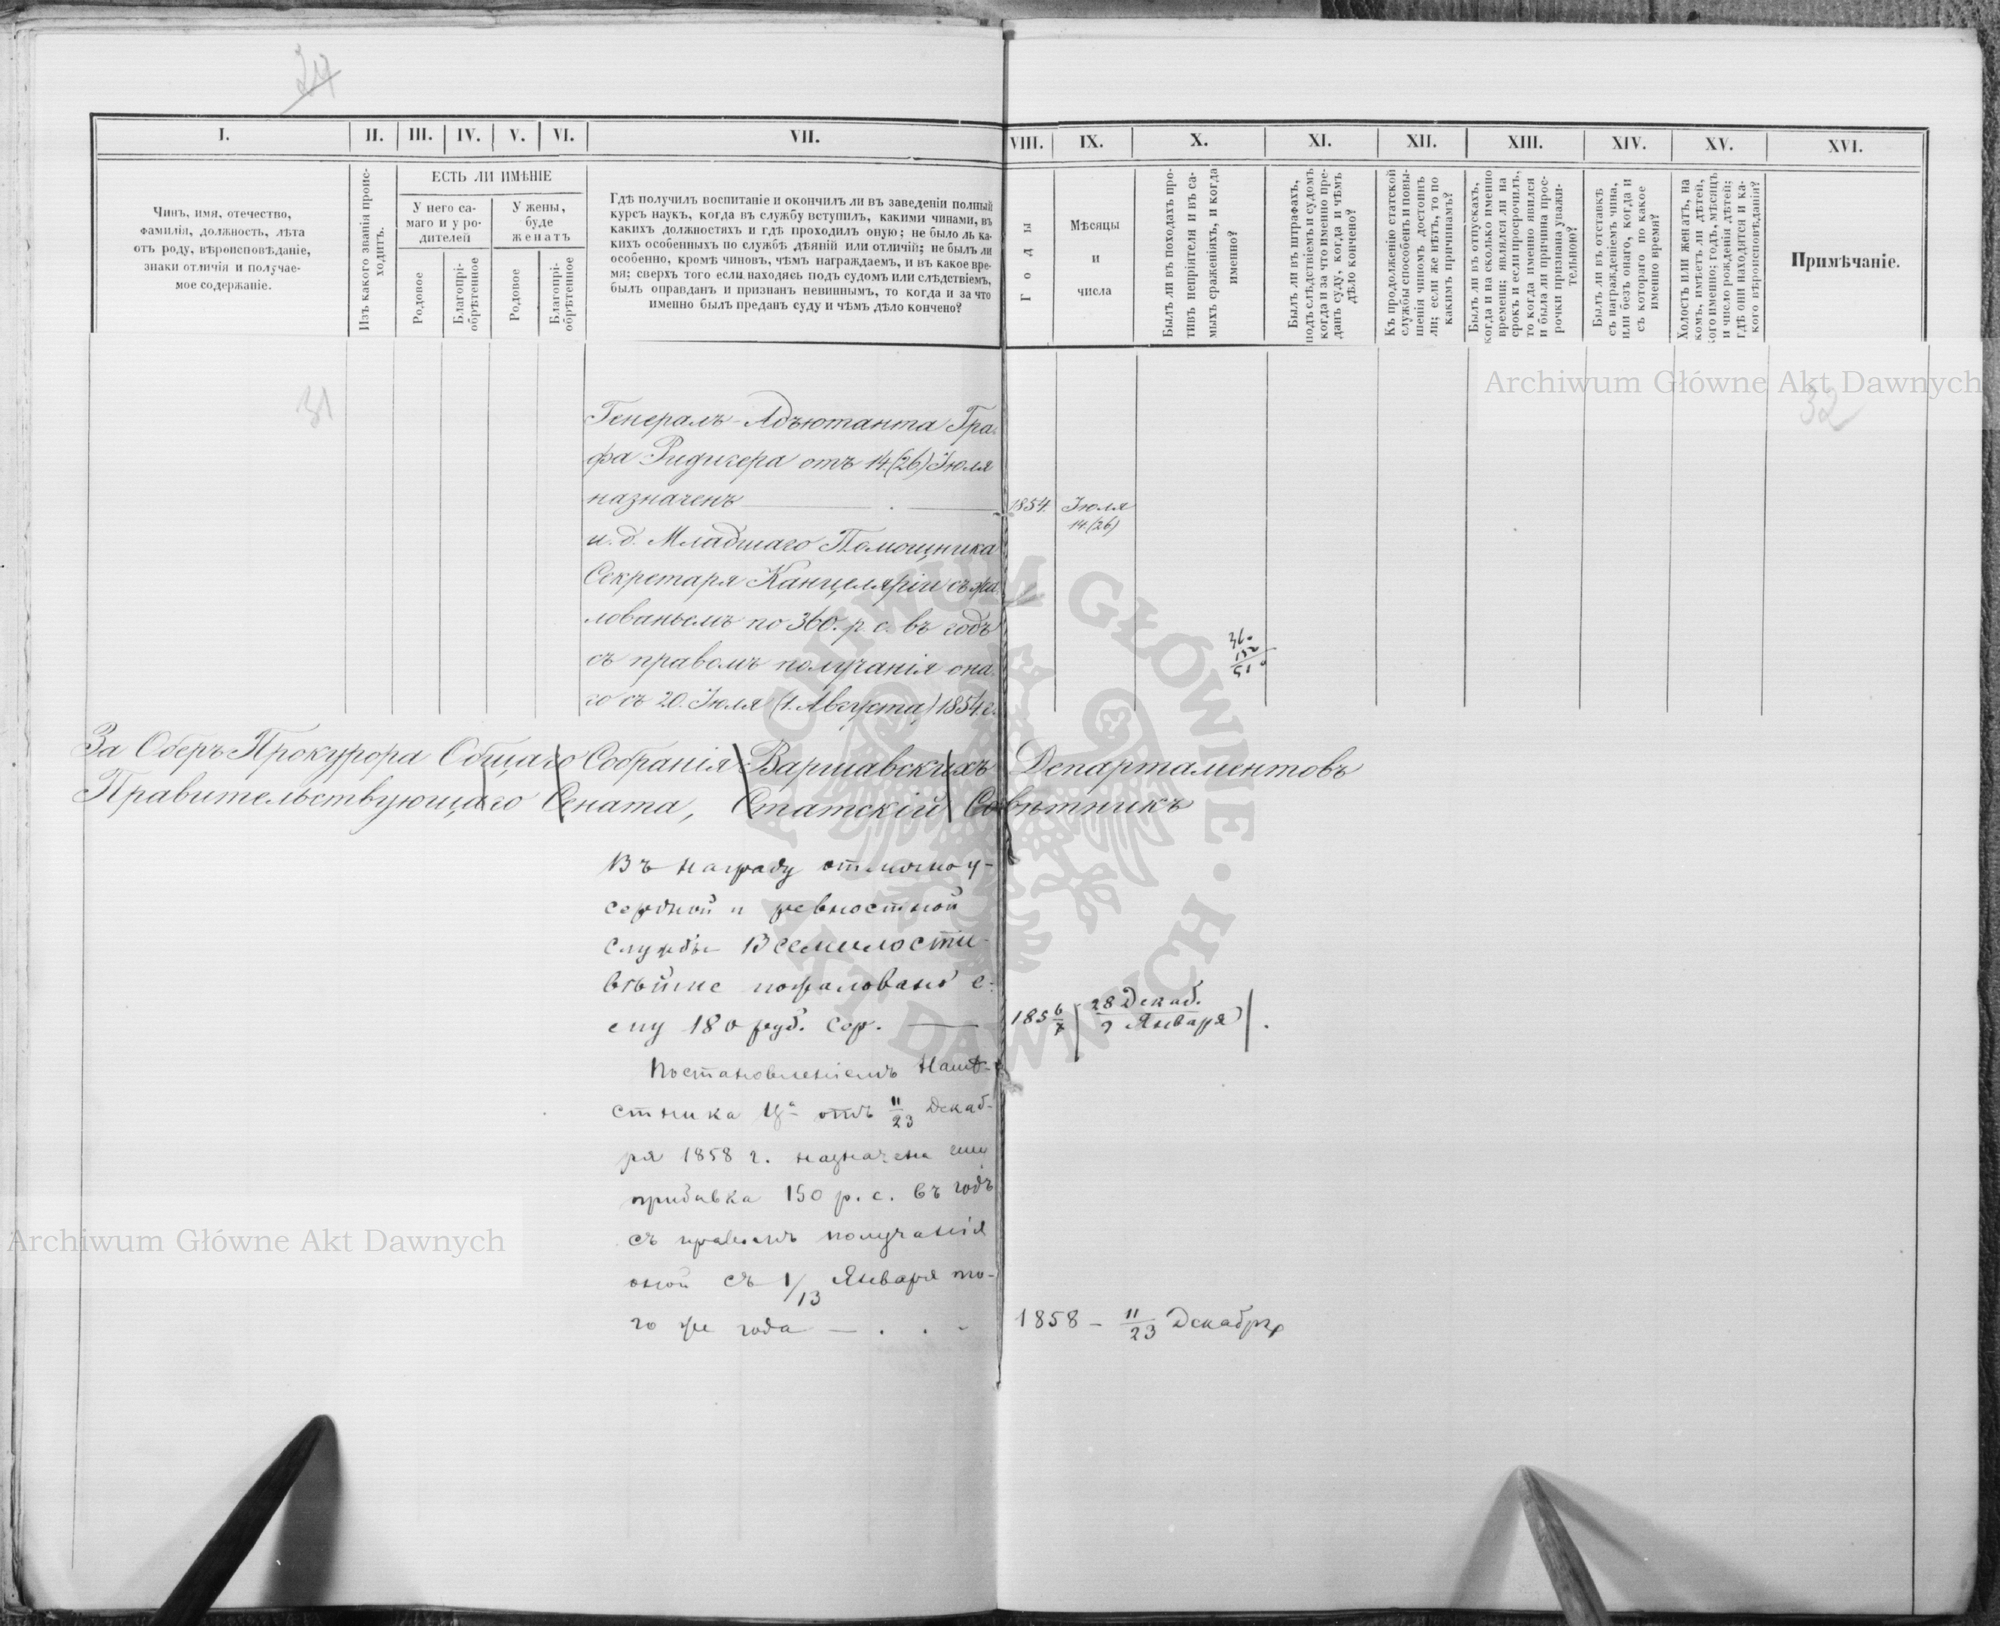 24
I.
II.
III.
IV.
V.
VI.
VII.
VIII.
IX.
X.
XI.
XII.
XIII.
XIV.
XV.
XVI.
Чинъ, имя, отечество,
фамилія, должность, лѣта
отъ роду, вѣроисповѣданіе,
знаки отличія и получае-
мое содержаніе.
Изъ какого званія проис-
ходитъ.
ЕСТЬ ЛИ ИМѢНІЕ
У него са-
маго и у ро-
дителей
У жены,
буде
женатъ
Родовое
Благопрі-
обрѣтенное
Родовое
Благопрі-
обрѣтенное
Гдѣ получилъ воспитаніе и окончилъ ли въ заведеніи полный
курсъ наукъ, когда въ службу вступилъ, какими чинами, въ
какихъ должностяхъ и гдѣ проходилъ оную; не было ль ка-
кихъ особенныхъ по службѣ дѣяній или отличій; не былъ ли
особенно, кромѣ чиновъ, чѣмъ награждаемъ, и въ какое вре-
мя; сверхъ того если находясь подъ судомъ или слѣдствіемъ,
былъ оправданъ и признанъ невиннымъ, то когда и за что
именно былъ преданъ суду и чѣмъ дѣло кончено?
Годы
Мѣсяцы
и
числа
Былъ ли въ походахъ про-
тивъ непріятеля и въ са-
мыхъ сраженіяхъ, и когда
именно?
Былъ ли въ штрафахъ,
подъ слѣдствіемъ и судомъ
когда и за что именно пре-
данъ суду, когда и чѣмъ
дѣло кончено?
Къ продолженію статской
службы способенъ и повы-
шенія чиномъ достоинъ
ли; если же нѣтъ, то по
какимъ причинамъ?
Былъ ли въ отпускахъ,
когда и на сколько именно
времени; явился ли на
срокъ и если просрочилъ,
то когда именно явился
и была ли причина прос-
рочки признана уважи-
тельною?
Былъ ли въ отставкѣ
съ награжденіемъ чина,
или безъ онаго, когда и
съ котораго по какое
именно время?
Холостъ или женатъ, на
комъ, имѣетъ ли дѣтей,
кого именно; годъ, мѣсяцъ
и число рожденія дѣтей;
гдѣ они находятся и ка-
кого вѣроисповѣданія?
Примѣчаніе.
Archiwum Główne Akt Dawnych
31
32
Генералъ-Адъютанта Гра-
фа Ридигера отъ 14.(26) Іюля
назначенъ
1854. Іюля
14.(26)
и. д. Младшаго Помощника
Секретаря Канцеляріи съ жа-
лованьемъ по 360. р. с. въ годъ
съ правомъ получанія она-
го съ 20. Іюля (1. Августа) 1854 г.
За Оберъ Прокурора Общаго Собранія Варшавскихъ Департаментовъ
Правительствующаго Сената, Статскій Совѣтникъ
Въ награду отлично у-
сердной и ревностной
службы Всемилости-
вѣйше пожаловано е-
му 180 руб. сер.
185 6/7 28 Декаб.
9 Января
Постановленіемъ Намѣ-
стника Цa отъ 11/23 Декаб-
ря 1858 г. назначена ему
прибавка 150 р. с. въ годъ
съ правомъ получанія
оной съ 1/13 Января то-
го же года
1858 - 11/23 Декабря
Archiwum Główne Akt Dawnych
ARCHIWUM GŁÓWNE AKT DAWNYCH